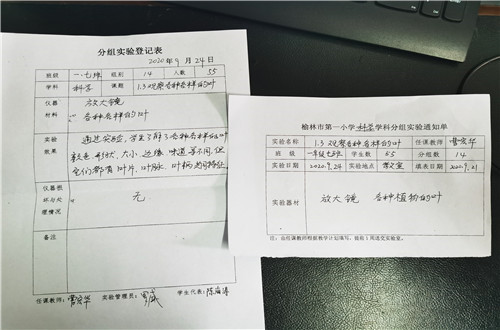 分组实验登记表
2020年9月24日
班级 一·七班 组别 14 人数 55
学科 科学 课题 1.3观察各种各样的叶
仪器材料 放大镜
各种各样的叶
实验效果 通过实验,学生了解了各种各样的叶
颜色、形状、大小、边缘、味道等不同,但
它们都有叶片、叶脉、叶柄
仪器损坏与处理情况 无
备注
任课教师: 曹宏华 实验管理员: 学生代表:
榆林市第一小学科学学科分组实验通知单
实验名称 1.3观察各种各样的叶 任课教师 曹宏华
班 级 一年级七班 学生数 55 分组数 14
实验日期 2020.9.24 实验地点 填表日期 2020.9.21
实验器材 放大镜 各种植物的叶
注:由任课教师根据教学计划填写,提前1周送交实验室。